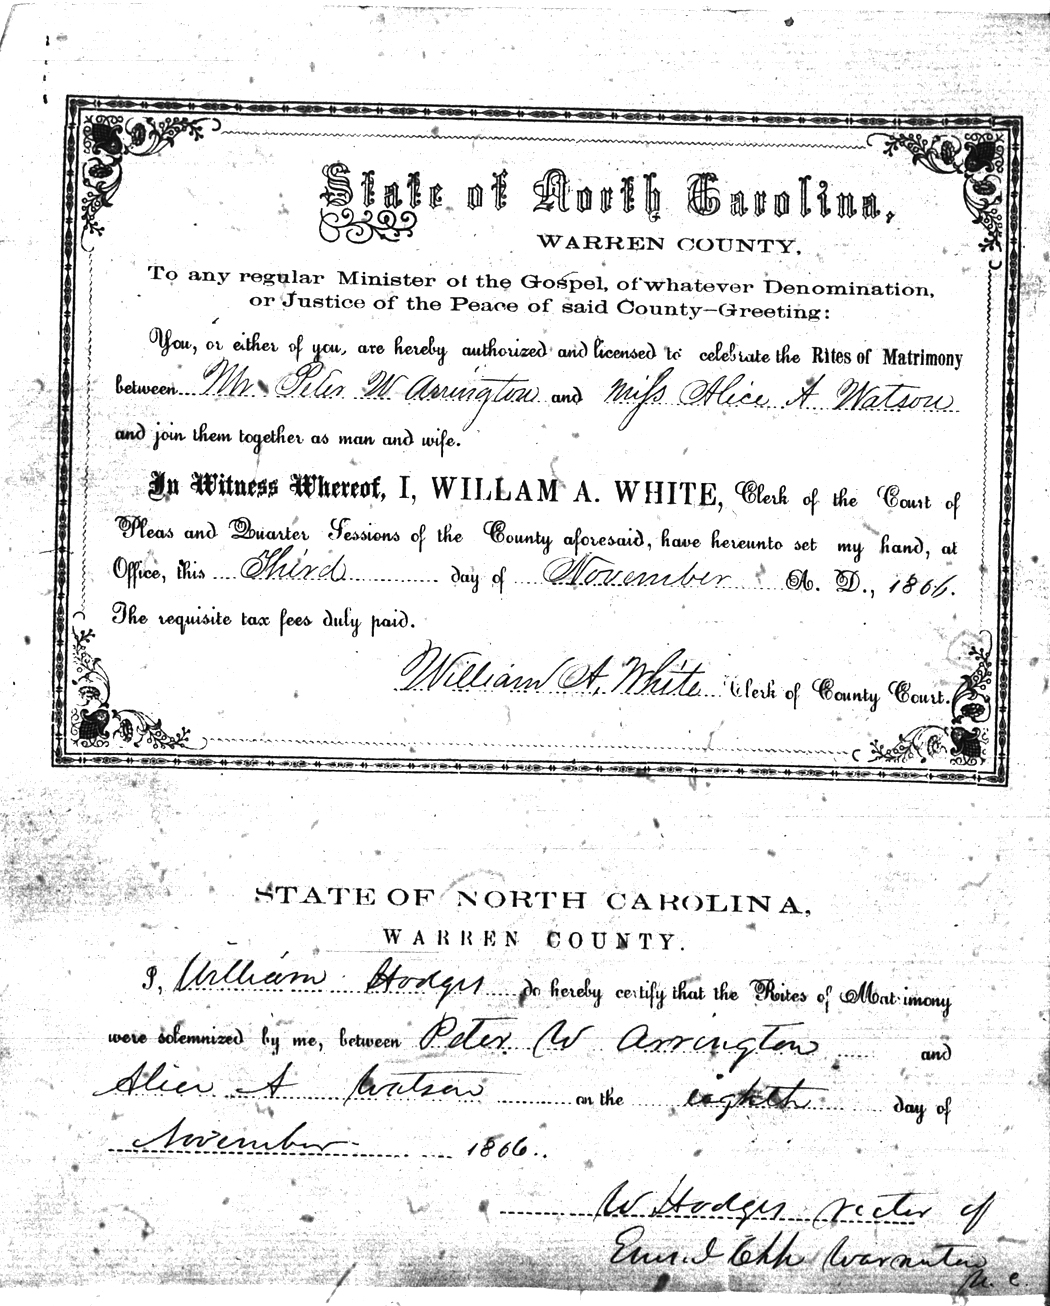 State of North Carolina,
WARREN COUNTY,
To any regular Minister of the Gospel, of whatever Denomination,
or Justice of the Peace of said County—Greeting:
You, or either of you, are hereby authorized and licensed to celebrate the Rites of Matrimony
between Mr. Peter W Arrington and Miss Alice A Watson
and join them together as man and wife.
In Witness Whereof, I, WILLAM A. WHITE, Clerk of the Court of
Pleas and Quarter Sessions of the County aforesaid, have hereunto set my hand, at
Office, this Third day of November A. D., 1866.
The requisite tax fees duly paid.
William A. White Clerk of County Court.
STATE OF NORTH CAROLINA,
WARREN COUNTY.
I, William Hodges do hereby certify that the Rites of Matrimony
were solemnized by me, between Peter W Arrington and
Alice A Watson on the eighth day of
November 1866.
W Hodges rector of
Warrenton
N. C.